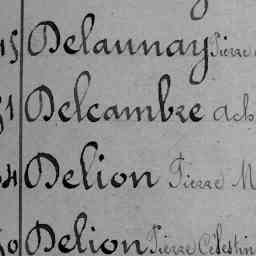 Delaunay Pierre
Delcambre Ach
Delion Pierre M
Delion Pierre Célestin